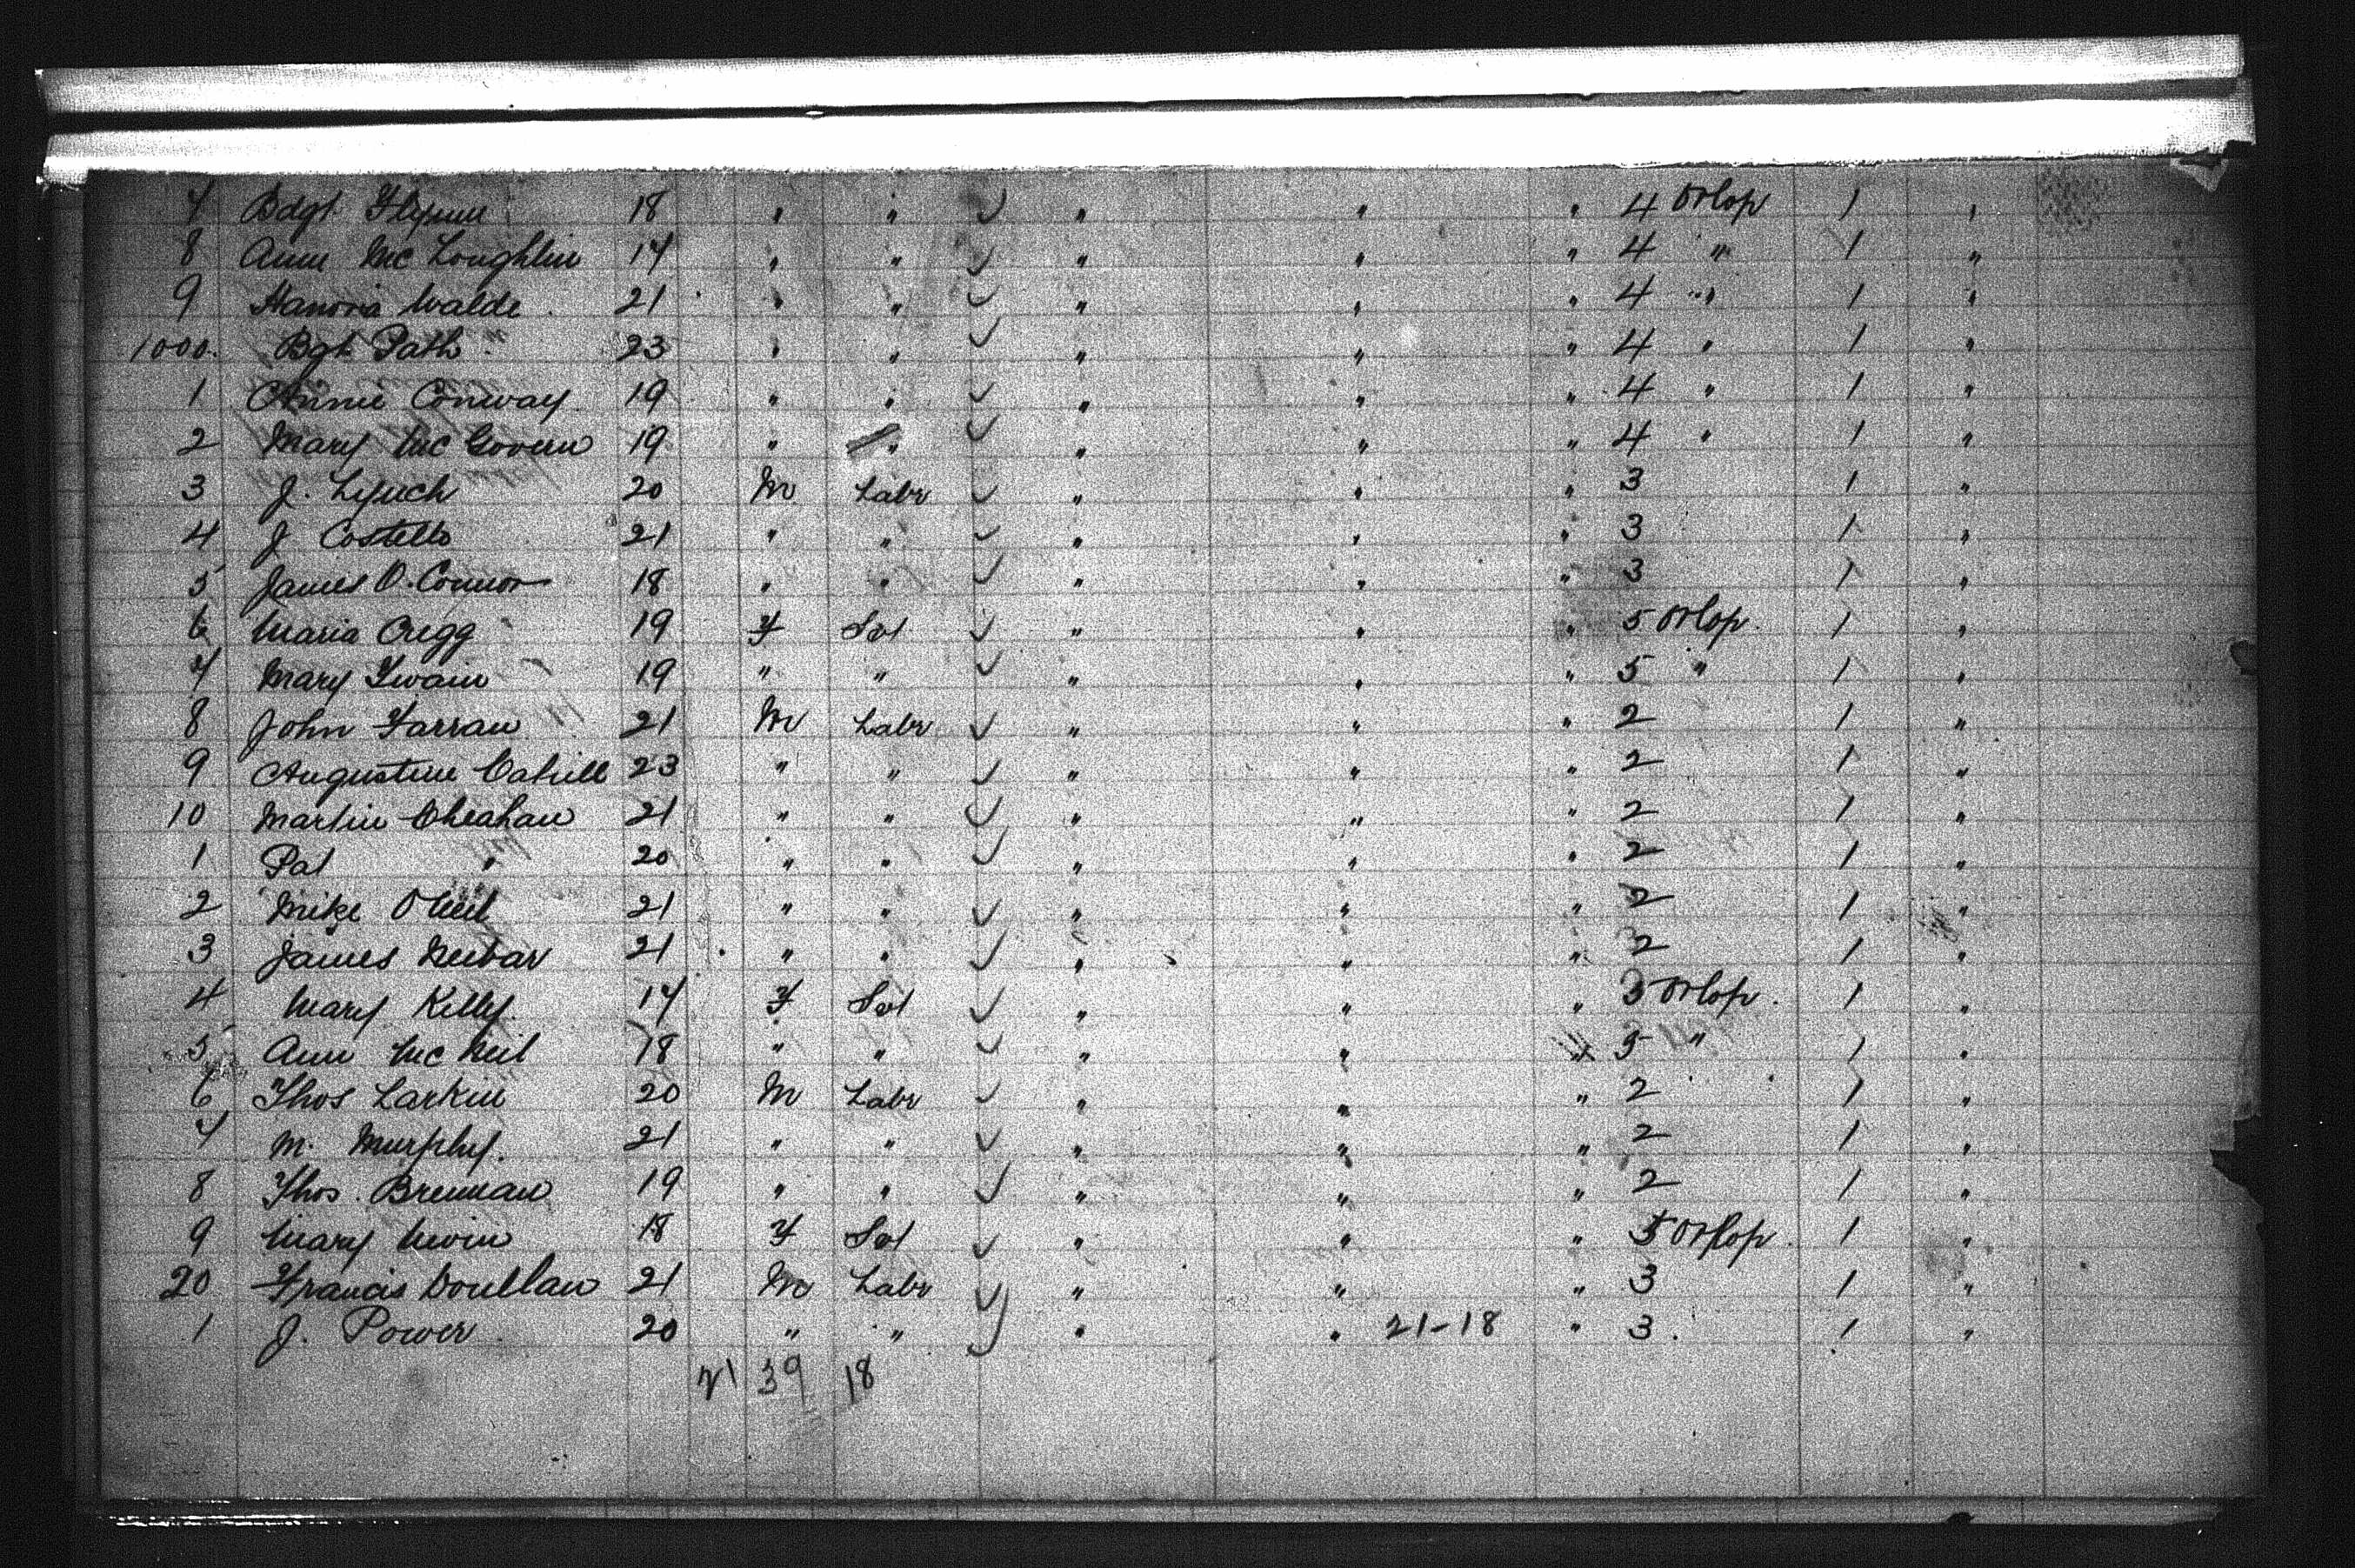 7 Bdgt. Flynn 18 " " ✓ " " " 4 Orlop 1 "
8 Ann McLoughlin 17 " " ✓ " " " 4 " 1 "
9 Hanoria Walde 21 " " ✓ " " " 4 " 1 "
1000. Bgt Path 23 " " ✓ " " " 4 " 1 "
1 Annie Conway 19 " " ✓ " " " 4 " 1 "
2 Mary McGovern 19 " " ✓ " " " 4 " 1 "
3 J. Lynch 20 M Labr ✓ " " " 3 1 "
4 J Costello 21 " " ✓ " " " 3 1 "
5 James O. Connor 18 " " ✓ " " " 3 1 "
6 Maria Cregg 19 F Svt ✓ " " " 5 Orlop. 1 "
7 Mary Swain 19 " " ✓ " " " 5 " 1 "
8 John Farran 21 M Labr ✓ " " " 2 1 "
9 Augustine Cahill 23 " " ✓ " " " 2 1 "
10 Martin Cheahan 21 " " ✓ " " " 2 1 "
1 Pat " 20 " " ✓ " " " 2 1 "
2 Mike ONeil 21 " " ✓ " " " 2 1 "
3 James 21 " " ✓ " " " 2 1 "
4 Mary Kelly. 17 F Svt ✓ " " " 5 Orlop. 1 "
5 Ann McNeil 18 " " ✓ " " " 5 " 1 "
6 Thos Larkin 20 M Labr ✓ " " " 2 1 "
7 M. Murphy. 21 " " ✓ " " " 2 1 "
8 Thos. Brennan 19 " " ✓ " " " 2 1 "
9 Mary Nevin 18 F Svt ✓ " " " 5 Orlop. 1 "
20 Francis 21 M Labr ✓ " " " 3 1 "
1 J. Power 20 " " ✓ " " 21-18 " 3. 1 "
21 39 18